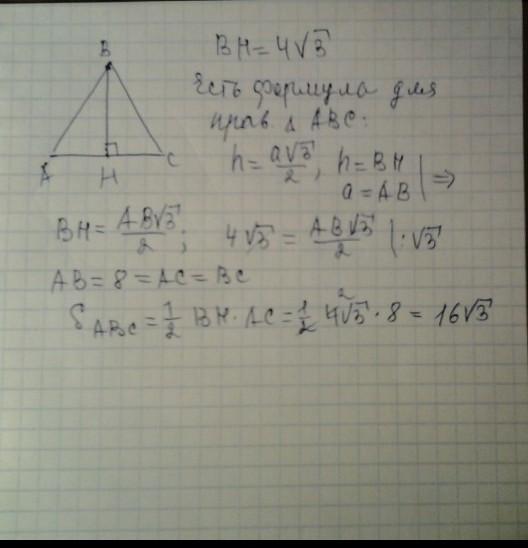 B
A
H
C
BH = 4√3
Есть формула для
прав. △ ABC:
h = a√3/2, h = BH
a = AB | ⇒
BH = AB√3/2; 4√3 = AB√3/2 | :√3
AB = 8 = AC = BC
S ABC = 1/2 BH · AC = 1/2 4√3 · 8 = 16√3
2